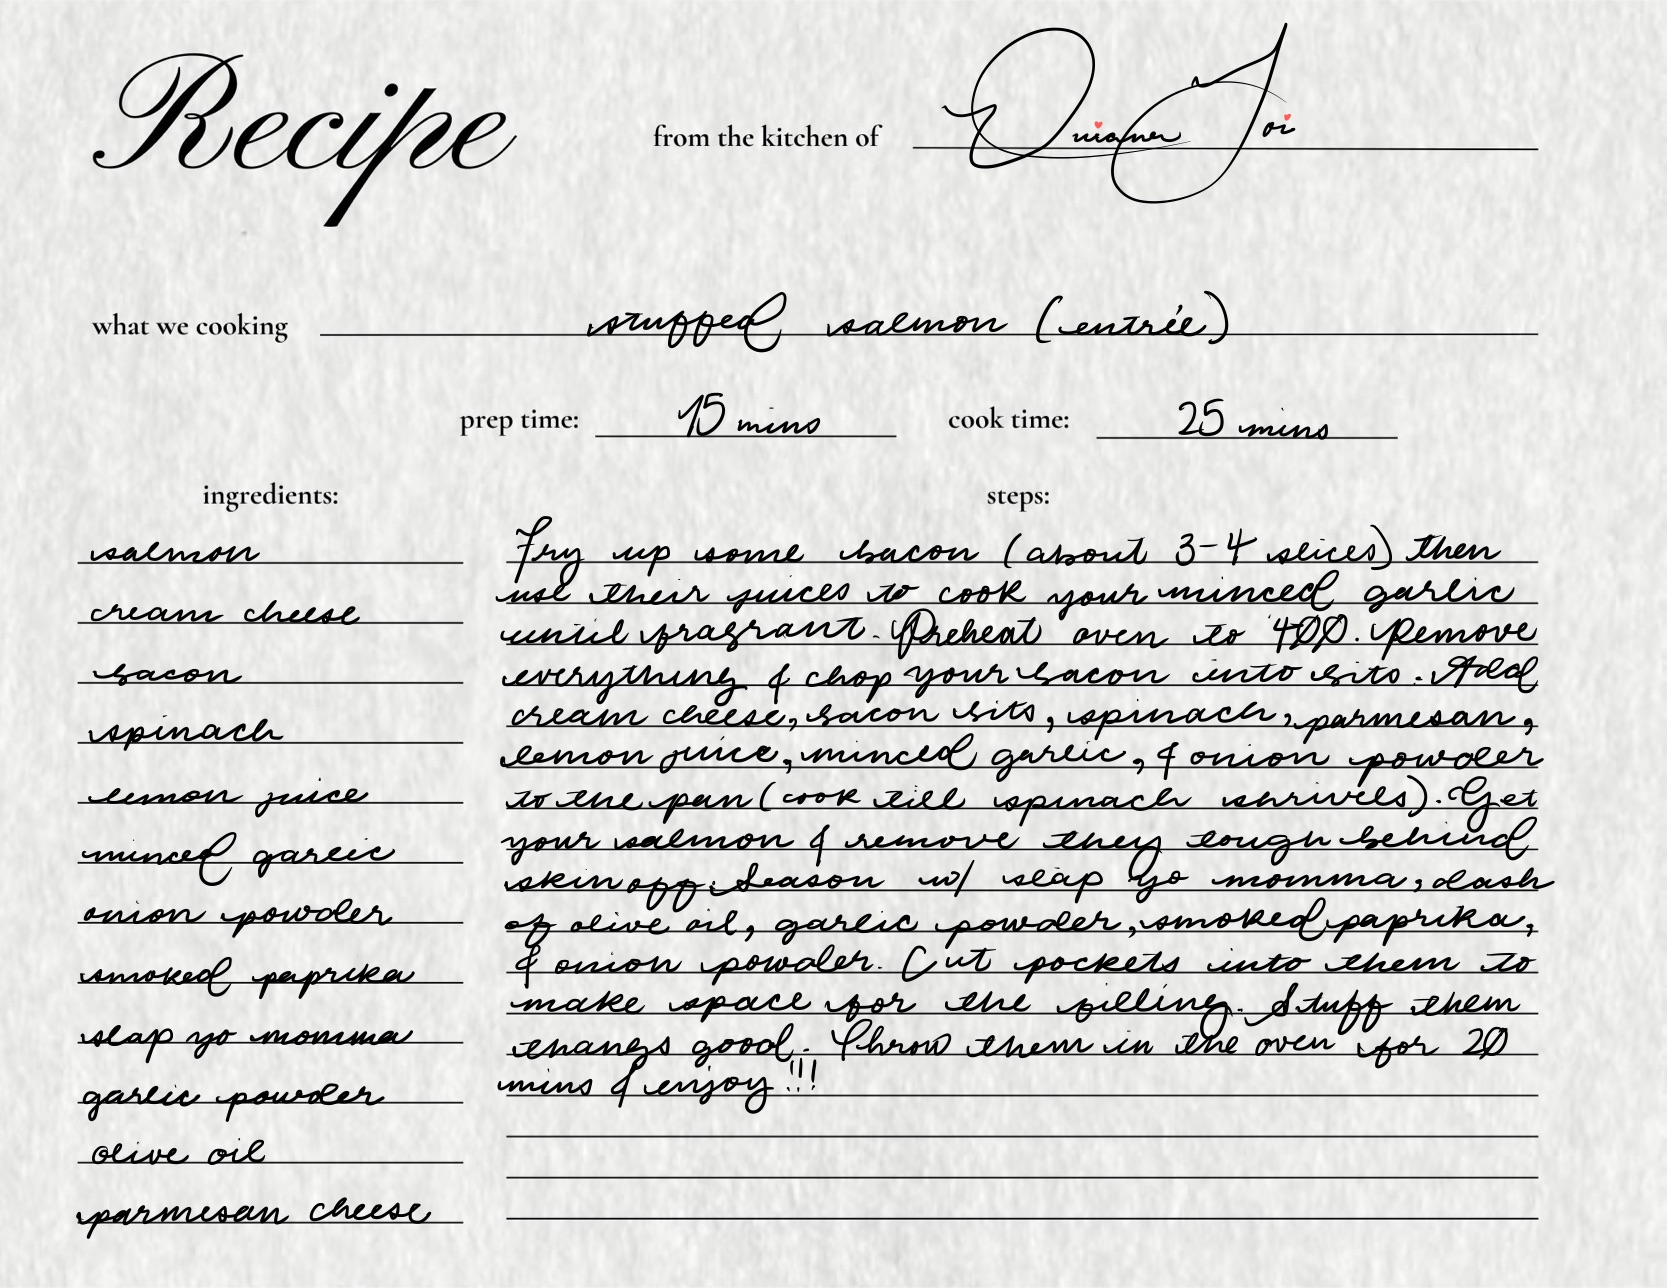 Recipe
from the kitchen of
what we cooking stuffed salmon (entrée)
prep time: 15 mins cook time: 25 mins
ingredients:
salmon
cream cheese
bacon
spinach
lemon juice
minced garlic
onion powder
smoked paprika
slap yo momma
garlic powder
olive oil
parmesan cheese
steps:
Fry up some bacon (about 3-4 slices) then
use their juices to cook your minced garlic
until fragrant. Preheat oven to 400. Remove
everything & chop your bacon into bits. Add
cream cheese, bacon bits, spinach, parmesan,
lemon juice, minced garlic, & onion powder
to the pan (cook till spinach shrivels). Get
your salmon & remove they tough behind
skin off. Season w/ slap yo momma, dash
of olive oil, garlic powder, smoked paprika,
& onion powder. Cut pockets into them to
make space for the filling. Stuff them
thangs good. Throw them in the oven for 20
mins & enjoy!!!